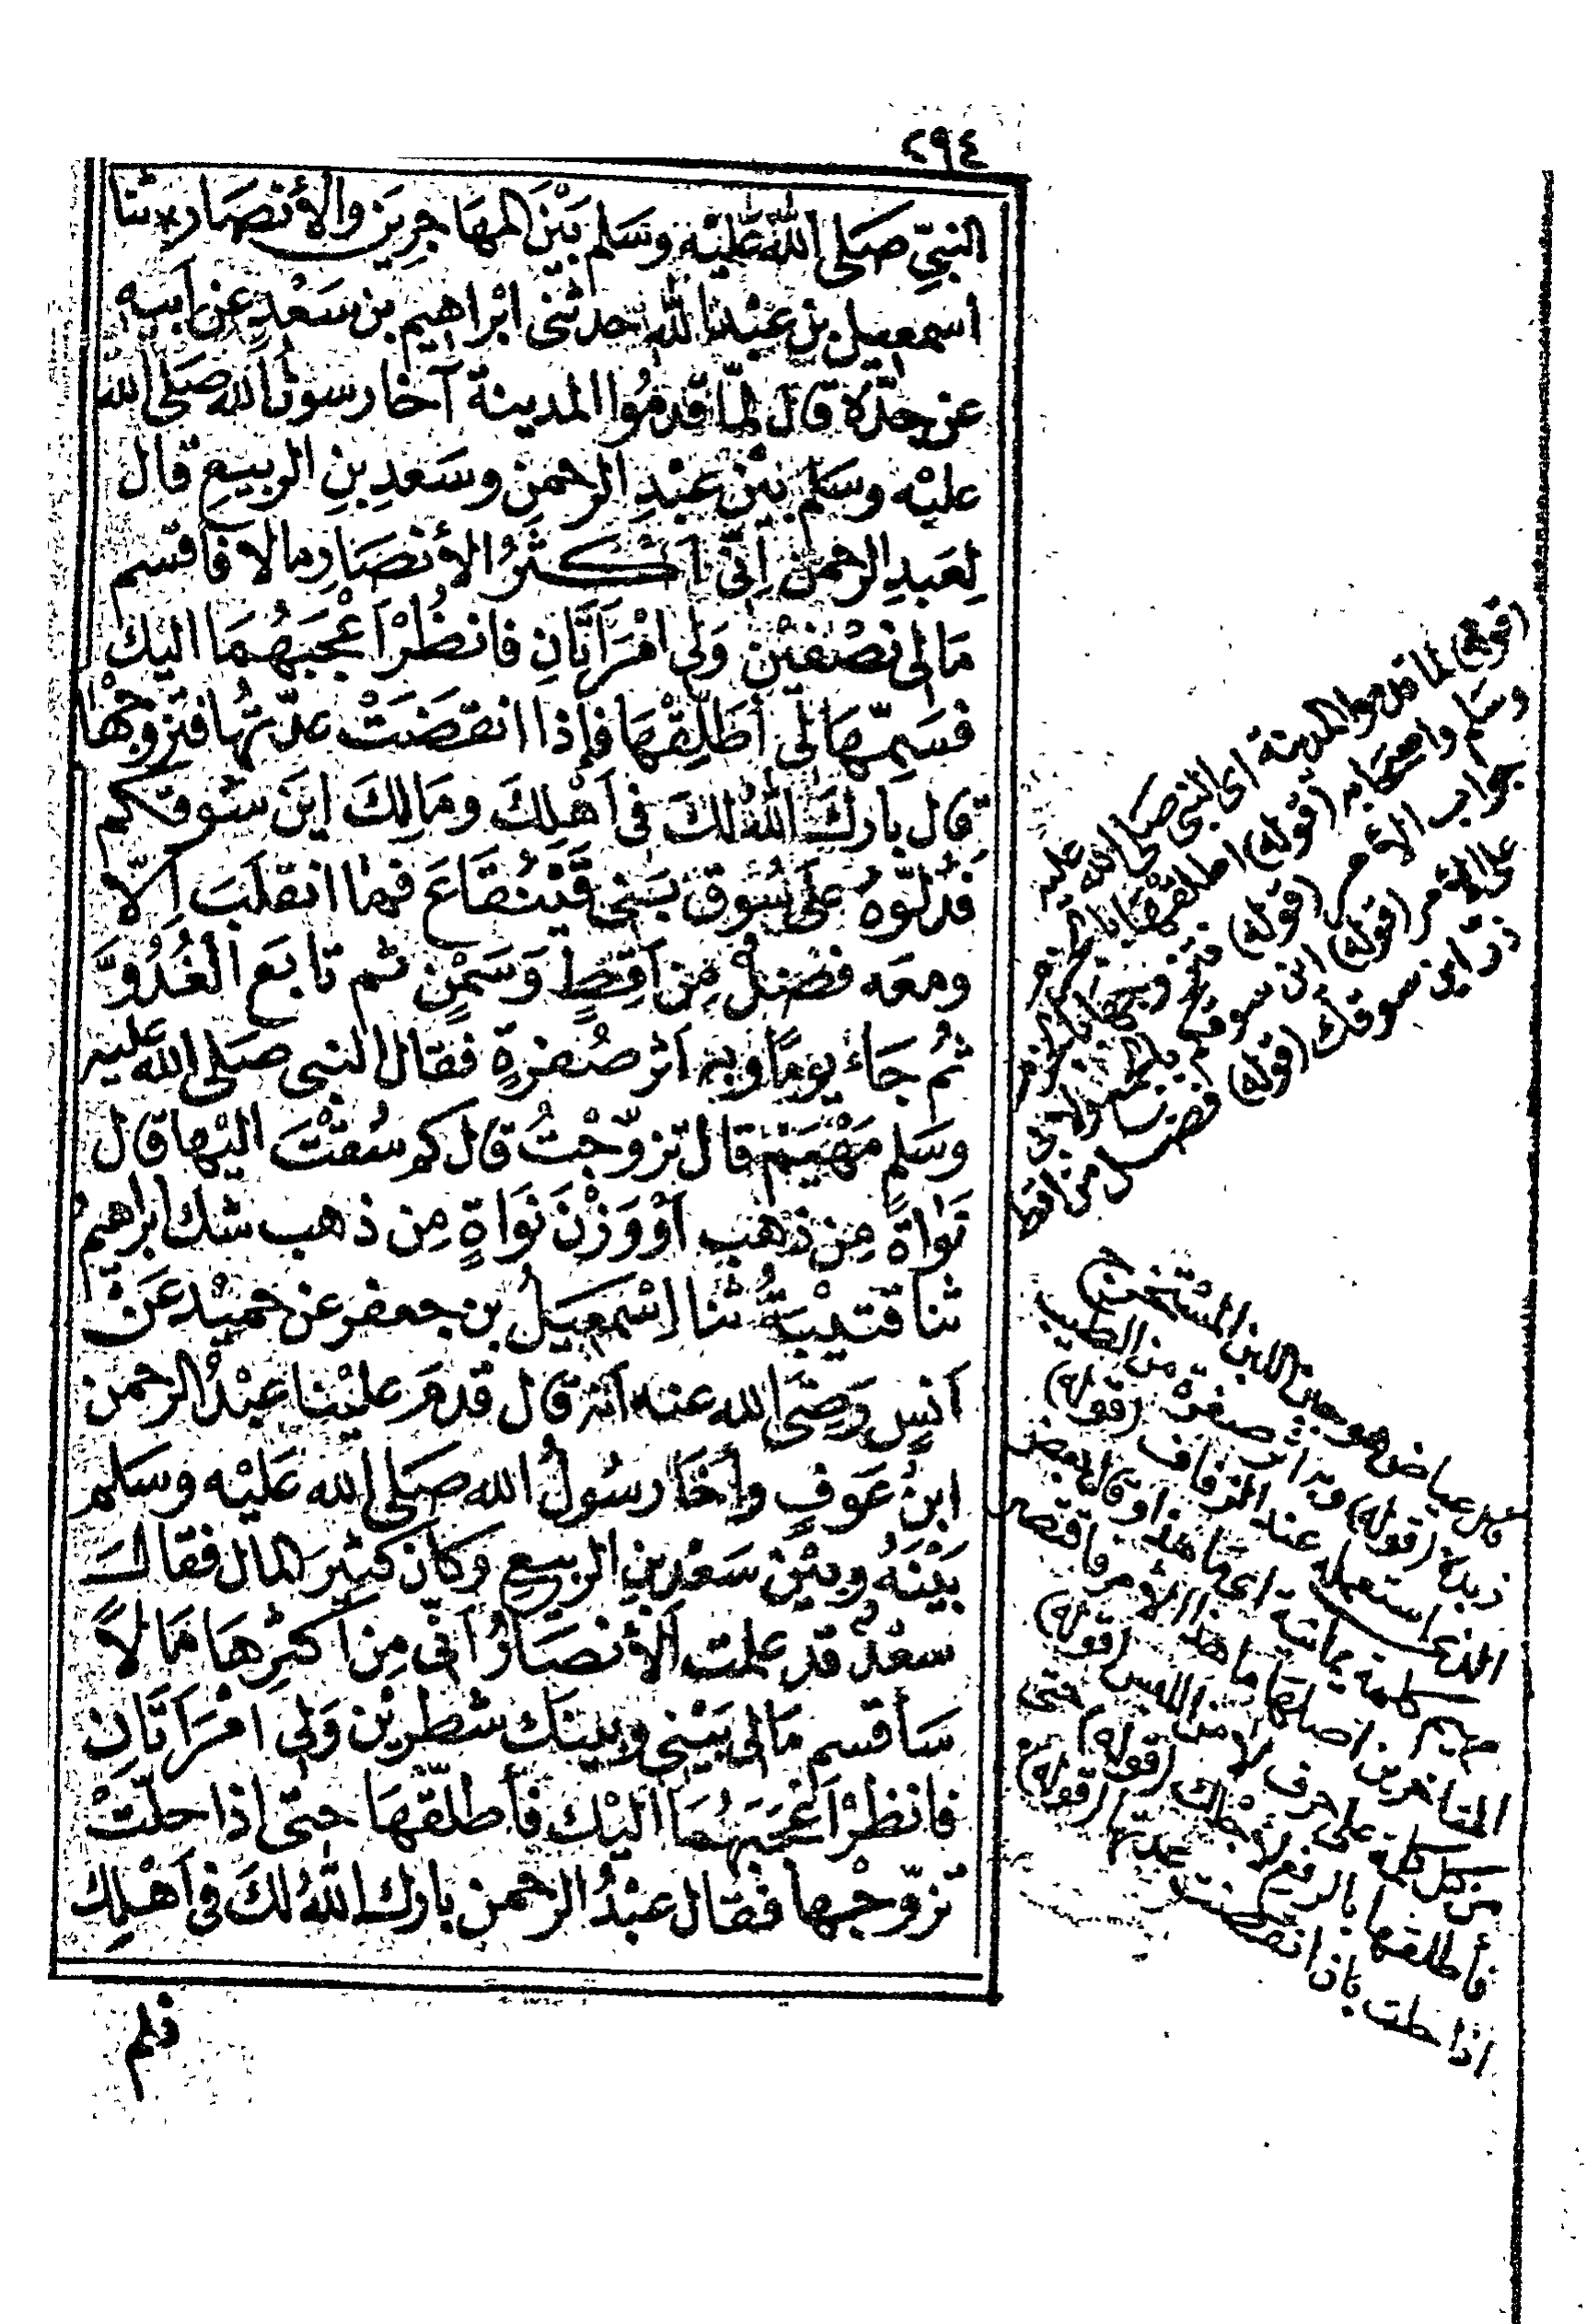 ٢٩٤
النبيّ صَلى الله عَليْه وسَلم بَيْنَ المهَاجِرِين والأنصَار * ثنا
اسمعيل بن عبْد الله حدثنى ابْراهيم بن سَعْدٍ عن اَبيه
عن جدّه قال لمّا قدمُوا المدينة آخا رسولُ الله صَلى الله
عليْه وسَلم بيْن عَبْدِ الرحمن وسَعدِ بنِ الربيعِ قال
لِعَبدِ الرحمن اِنّى اَكثَرُ الأنصَارِ مالا فأقسم
مَالى نصْفَيْن وَلى امْرَاَتَانِ فانظُرْ اَعْجَبَهُمَا اليك
فسَمِّهَا لى أطَلِّقْهَا فإذا انقضَتْ عدّتهُا فتزوجْهَا
قال بارك اللهُ لكَ فى اَهْلِكَ ومَالِكَ اينَ سُوقكم
فَدَلّوهُ عَلى سُوق بَنى قَيْنُقَاعَ فما انقلَبَ اِلّا
ومعَه فضْلٌ مِن اَقِطٍ وَسَمْنٍ ثم تابَع الغُدُوَّ
ثُم جَاءَ يومًا وبه اَثر صُفرةٍ فقال النبى صَلى الله عليه
وسَلم مَهْيَمْ قال تزوّجْتُ قال كم سُقْتَ اليْها قال
نَوَاةً مِن ذهَبٍ اَوْ وَزْنَ نَوَاةٍ مِن ذهب شك ابراهيمُ
ثنا قتيْبَةُ ثنا اِسْمعِيَلُ بن جعفر عن حميْد عَنْ
اَنسٍ رَضىَ الله عنه اَنه قال قدمَ عليْنا عبْدُ الرحمن
ابنُ عَوفٍ وأخَا رسُولُ الله صَلى الله عَليْه وسَلم
بَيْنَهُ وبيْن سَعْد بنِ الربيعِ وَكانَ كثيرَ المال فقال
سعْدٌ قد علمت الأنصَارُ اَنّى مِن اَكثرِهَا مَالاً
سَأقسم مَالى بَيْنى وبينَك شطريْن وَلى امْرَاَتَانِ
فانظرْ اَعْجَبَهُمَا اليْك فأطلّقهَا حتى اذا حلّتْ
تزوّجْها فقال عبْدُ الرحمن بارك اللهُ لكَ فى اَهْلِكَ
فلم
(قوله) لما قدموا المدينة اى النبى صلى الله عليه
وسلم واصحابه (قوله) اطلقها بالجزم
جواب الأمر (قوله) فتزوجها بالجزم
على الأمر (قوله) اين سوقكم
ذر اين سوقك (قوله) فضل من اقط
قال عياض هو جبن اللبن المستخرج
زبده (قوله) وبه اثر صفرة من الطيب
الذى استعمله عند الزفاف (قوله)
مهيم كلمة يمانية اى ما هذا وقال بعض
المتأخرين اصلها ما هذا الأمر فاقتصر
من كل كلمة على حرف لأمن اللبس (قوله)
فأطلقها بالرفع لأجلك (قوله) حتى
اذا حلت بان انقضت عدتها (قوله)